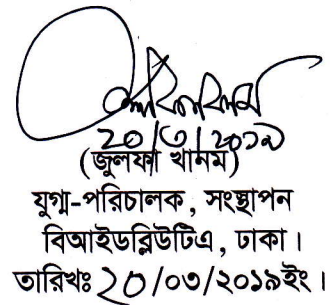 ২০/৩/২০১৯
(জুলফা খানম)
যুগ্ম-পরিচালক, সংস্থাপন
বিআইডব্লিউটিএ, ঢাকা।
তারিখঃ ২০/০৩/২০১৯ইং।